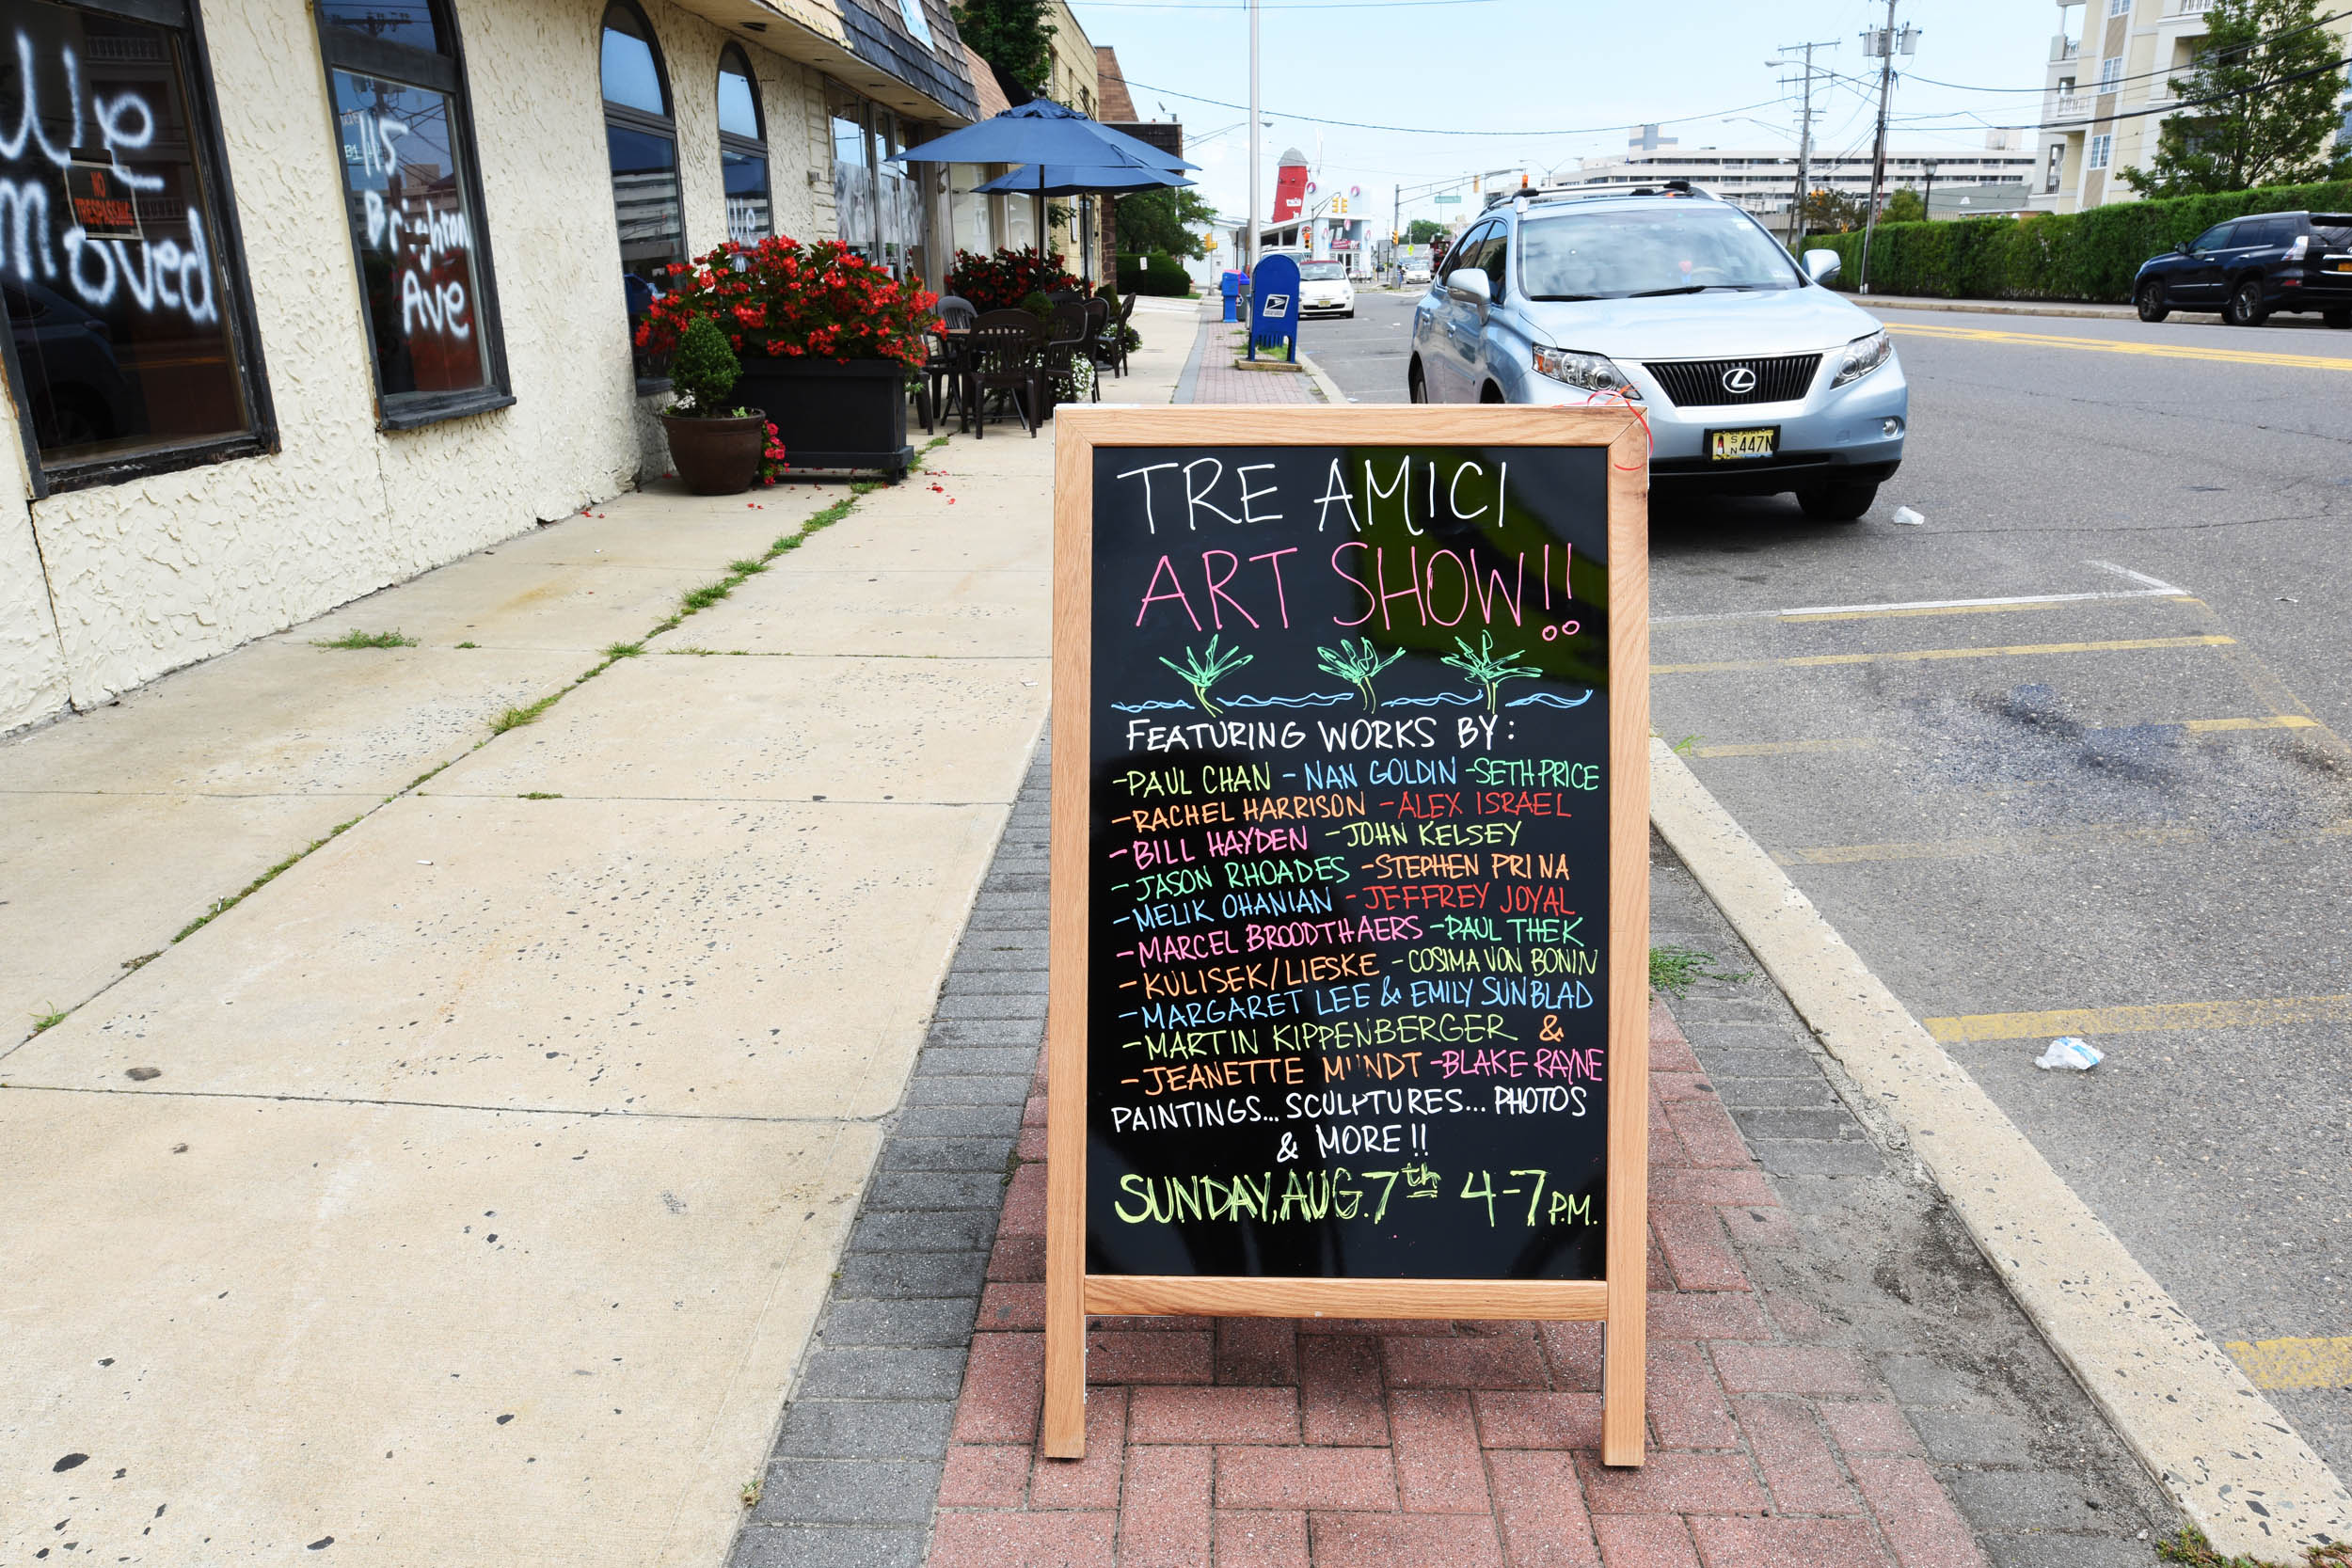 We
Moved
NO
TRESPASSING
115
Brighton
Ave
We
TRE AMICI
ART SHOW!!
FEATURING WORKS BY:
-PAUL CHAN -NAN GOLDIN -SETH PRICE
-RACHEL HARRISON -ALEX ISRAEL
-BILL HAYDEN -JOHN KELSEY
-JASON RHOADES -STEPHEN PRINA
-MELIK OHANIAN -JEFFREY JOYAL
-MARCEL BROODTHAERS -PAUL THEK
-KULISEK/LIESKE -COSIMA VON BONIN
-MARGARET LEE & EMILY SUNBLAD
-MARTIN KIPPENBERGER &
-JEANETTE MUNDT -BLAKE RAYNE
PAINTINGS... SCULPTURES... PHOTOS
& MORE!!
SUNDAY, AUG. 7th 4-7 P.M.